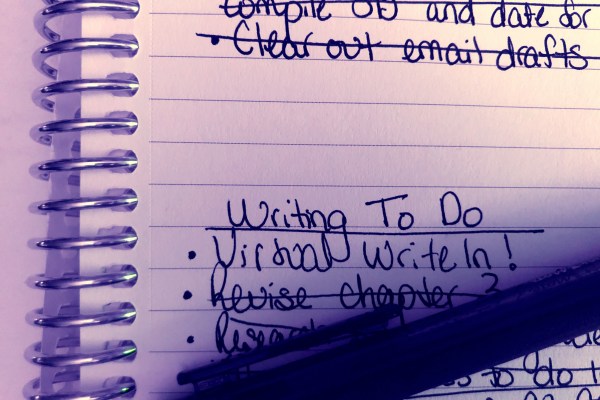 compile and date for
• Clear out email drafts
Writing To Do
• Virtual WriteIn!
• Revise chapter 3
• Research
to do